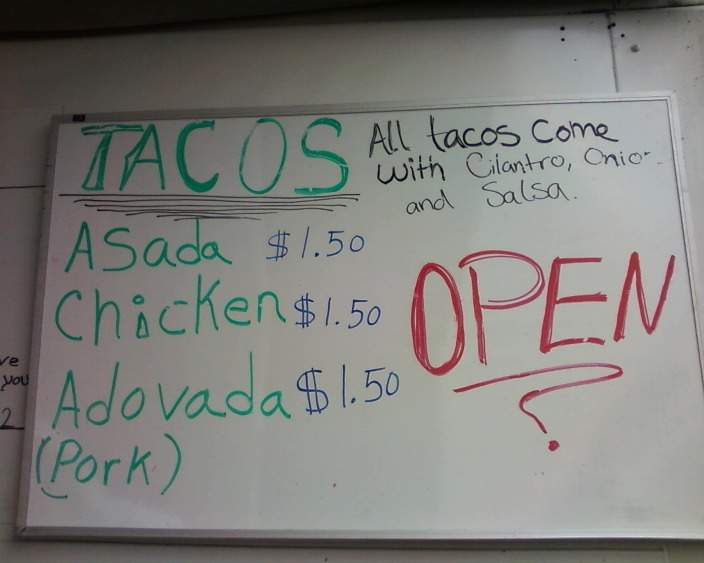 TACOS
All tacos Come
with Cilantro, Onion
and Salsa.
Asada $1.50
Chicken $1.50
Adovada $1.50
(Pork)
OPEN
ve
you
2